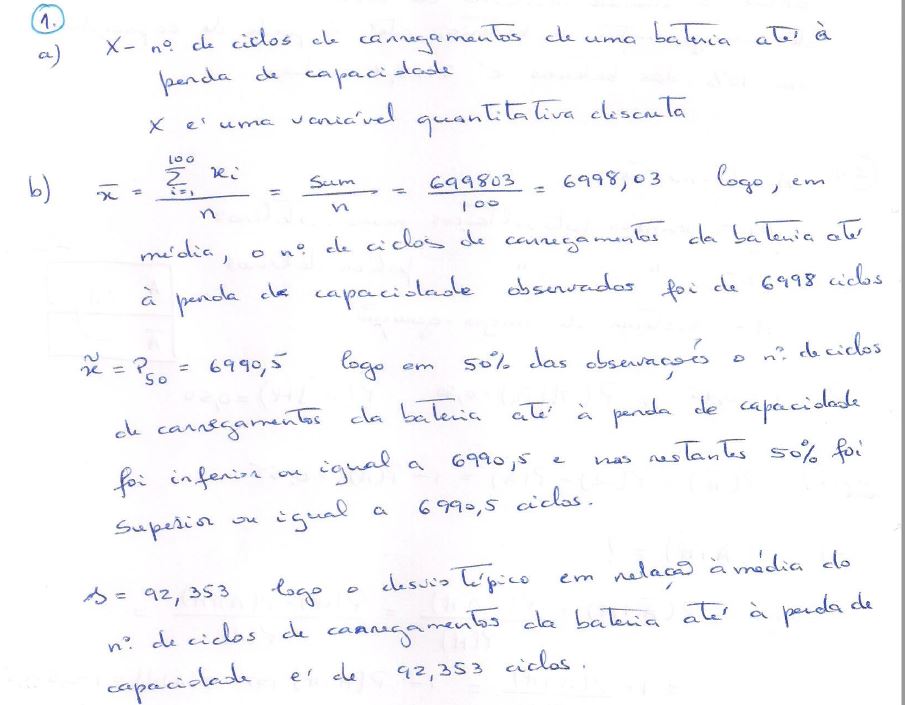 1.
a) X - nº de ciclos de carregamentos de uma bateria até à
perda de capacidade
X é uma variável quantitativa discreta
b) x̄ = Σ_{i=1}^{100} xi / n = Sum / n = 699803 / 100 = 6998,03 logo, em
média, o nº de ciclos de carregamentos da bateria até
à perda de capacidade observados foi de 6998 ciclos
x̃ = P50 = 6990,5 logo em 50% das observações o nº de ciclos
de carregamentos da bateria até à perda de capacidade
foi inferior ou igual a 6990,5 e nas restantes 50% foi
superior ou igual a 6990,5 ciclos.
s = 92,353 logo o desvio típico em relação à média do
nº de ciclos de carregamentos da bateria até à perda de
capacidade é de 92,353 ciclos.